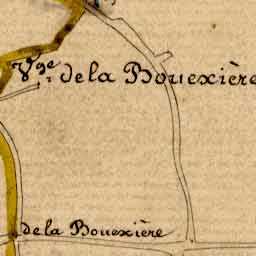 Vge de la Bouexière
de la Bouexière